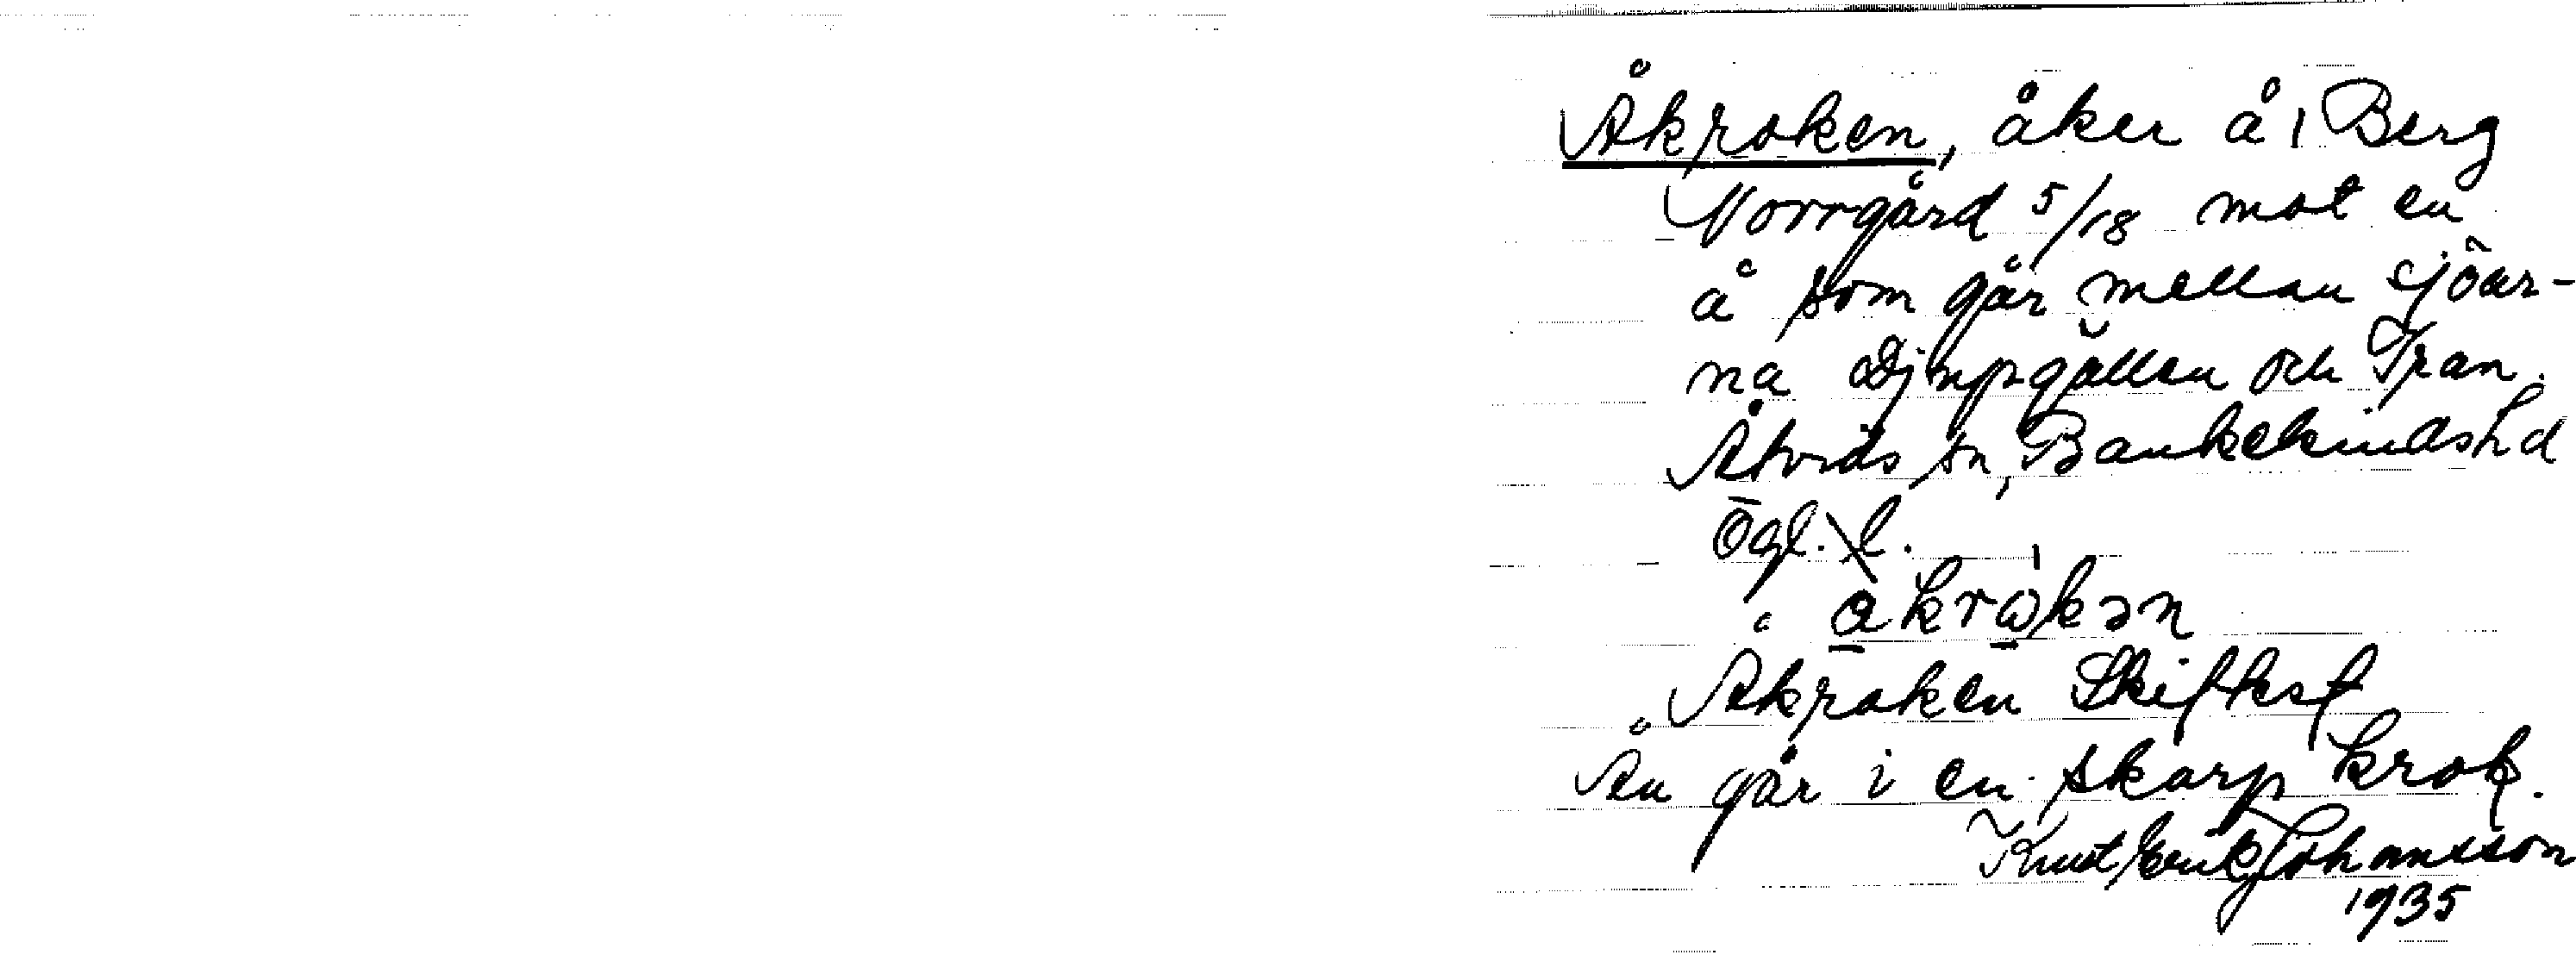 Åkroken, åker å 1 Berg
Norrgård 5/18 mot en
å som går mellan sjöar-
na Djupgällen och Tran.
Åtvids sn, Bankekindshd
Ögl. l.
åkrωkən
Åkroken Skifteskt
Ån går i en skarp krok.
Knut Erik Johansson
1935